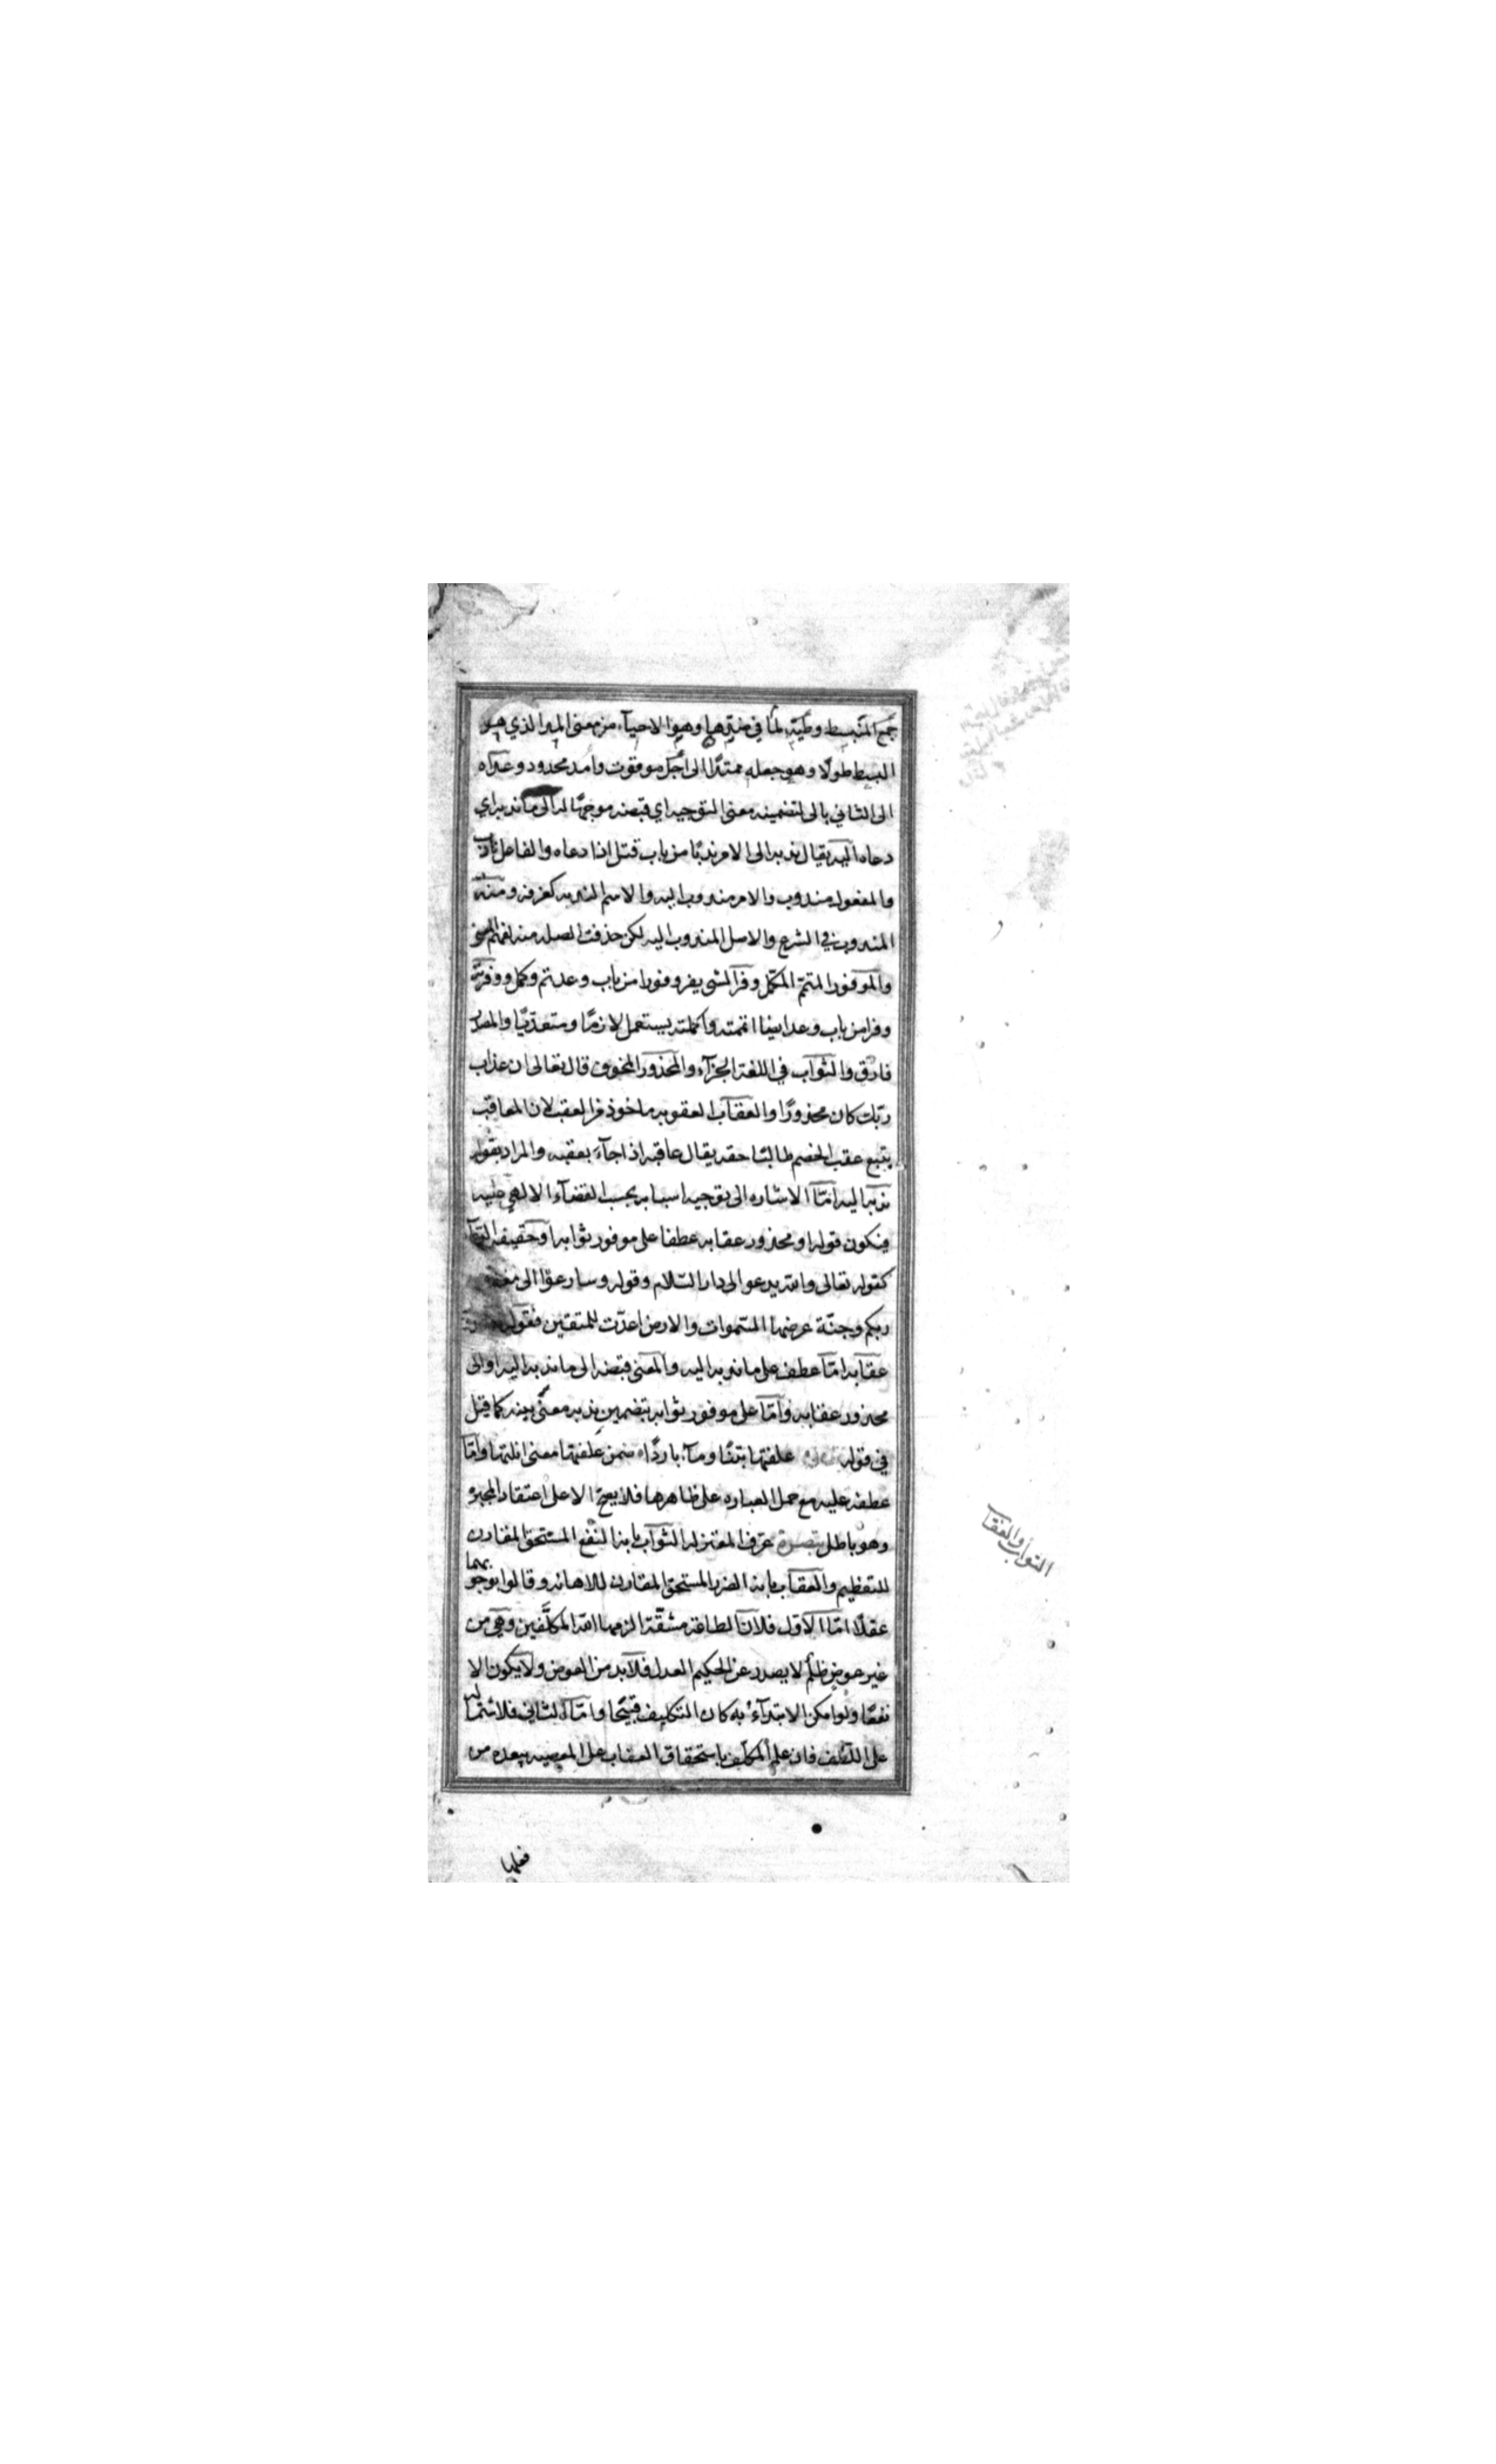 جمع المنبسط وطيّه لما في ضدّها وهو الاحياء من معنى المد الذي هو
البسط طولا وهو جعله ممتدّا الى اجل موقوت وامد محدود وعداه
الى الثاني بالى لتضمينه معنى التوجيه اي قبضه موجّها له الى ما ندبه اي
دعاه اليه يقال ندبه الى الامر ندبًا من باب قتل اذا دعاه والفاعل نادب
والمفعول مندوب والامر مندوب اليه والاسم الندبه كغرفه ومنه
المندوب في الشرع والاصل المندوب اليه لكن حذفت الصله منه لفهم المعنى
والموفور المتمّ المكمّل وفر الشي يفر وفورا من باب وعد تم وكمل ووفرته
وفرا من باب وعد ايضا اتممته واكملته يستعمل لازمًا ومتعدّيًا والمصدر
فارق والثواب في اللغة الجزآء والمحذور المخوف قال تعالى ان عذاب
ربّك كان محذورًا والعقاب العقوبه ماخوذ من العقب لان المعاقب
يتبع عقب الخصم طالبًا حقه يقال عاقبه اذا جآء بعقبه والمراد بقوله
ندبه اليه امّا الاشاره الى توجيه اسبابه بحسب القضآء الالهي عليه
فيكون قوله او محذور عقابه عطفا على موفور ثوابه او حقيقة الدعآء
كقوله تعالى والله يدعو الى دار السّلام وقوله وسارعوا الى مغفرة
ربكم وجنّة عرضها السّموات والارض اعدّت للمتقين فقوله
عقابه امّا عطف على ما ندبه اليه والمعنى قبضه الى ما ندبه اليه او الى
محذور عقابه وامّا على موفور ثوابه بتضمين ندبه معنًى يعينه كما قيل
في قوله علفتها تبنًا ومآء باردًا ضمن علفتها معنى انلتها وامّا
عطفه عليه مع حمل العباره على ظاهرها فلا يصحّ الا على اعتقاد المجبره
وهو باطل تبصرة عرف المعتزله الثواب بانه النّفع المستحق المقارن
للتعظيم والعقاب بانه الضرر المستحق المقارن للاهانه وقالوا بوجوبهما
عقلًا امّا الاوّل فلانّ الطاعة مشقّة الزمها الله المكلّفين وهي من
غير عوض ظلم لا يصدر عن الحكيم العدل فلا بد من العوض ولا يكون الا
نفعًا ولو امكن الابتدآء به كان التكليف قبيحًا وامّا الثاني فلاشتماله
على اللّطف فان علم المكلّف باستحقاق العقاب على المعصيه يبعده من
فعلها
الثواب والعقاب